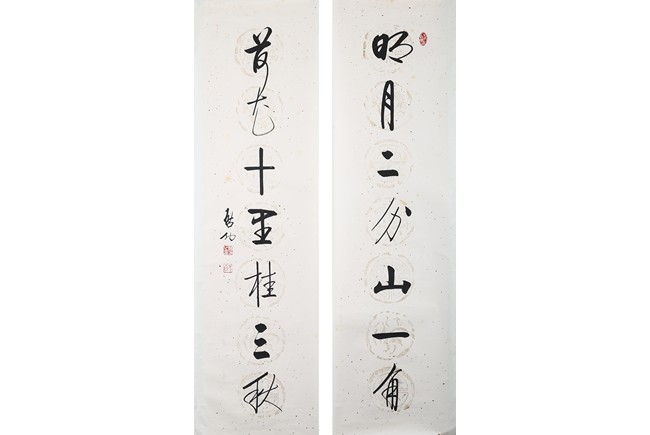 明月二分山一角
荷花十里桂三秋
啟功